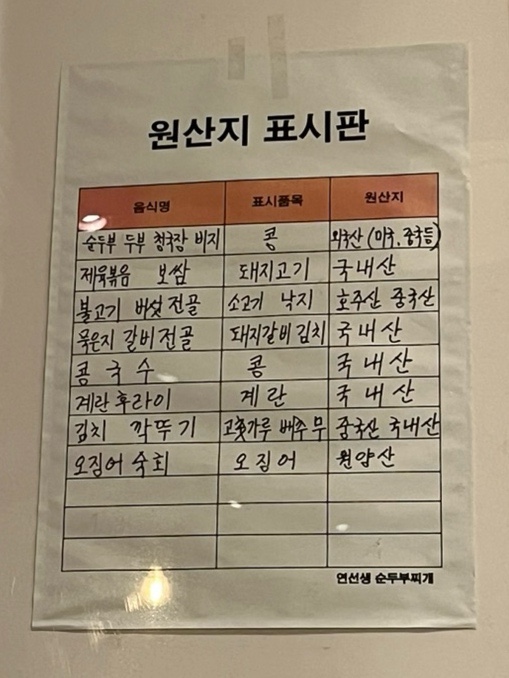 원산지 표시판
음식명 표시품목 원산지
순두부 두부 청국장 비지 콩 외국산 (미국, 중국등)
제육볶음 보쌈 돼지고기 국내산
불고기 버섯전골 소고기 낙지 호주산 중국산
묵은지 갈비전골 돼지갈비 김치 국내산
콩국수 콩 국내산
계란후라이 계란 국내산
김치 깍뚜기 고춧가루 배추 무 중국산 국내산
오징어숙회 오징어 원양산
연선생 순두부찌개